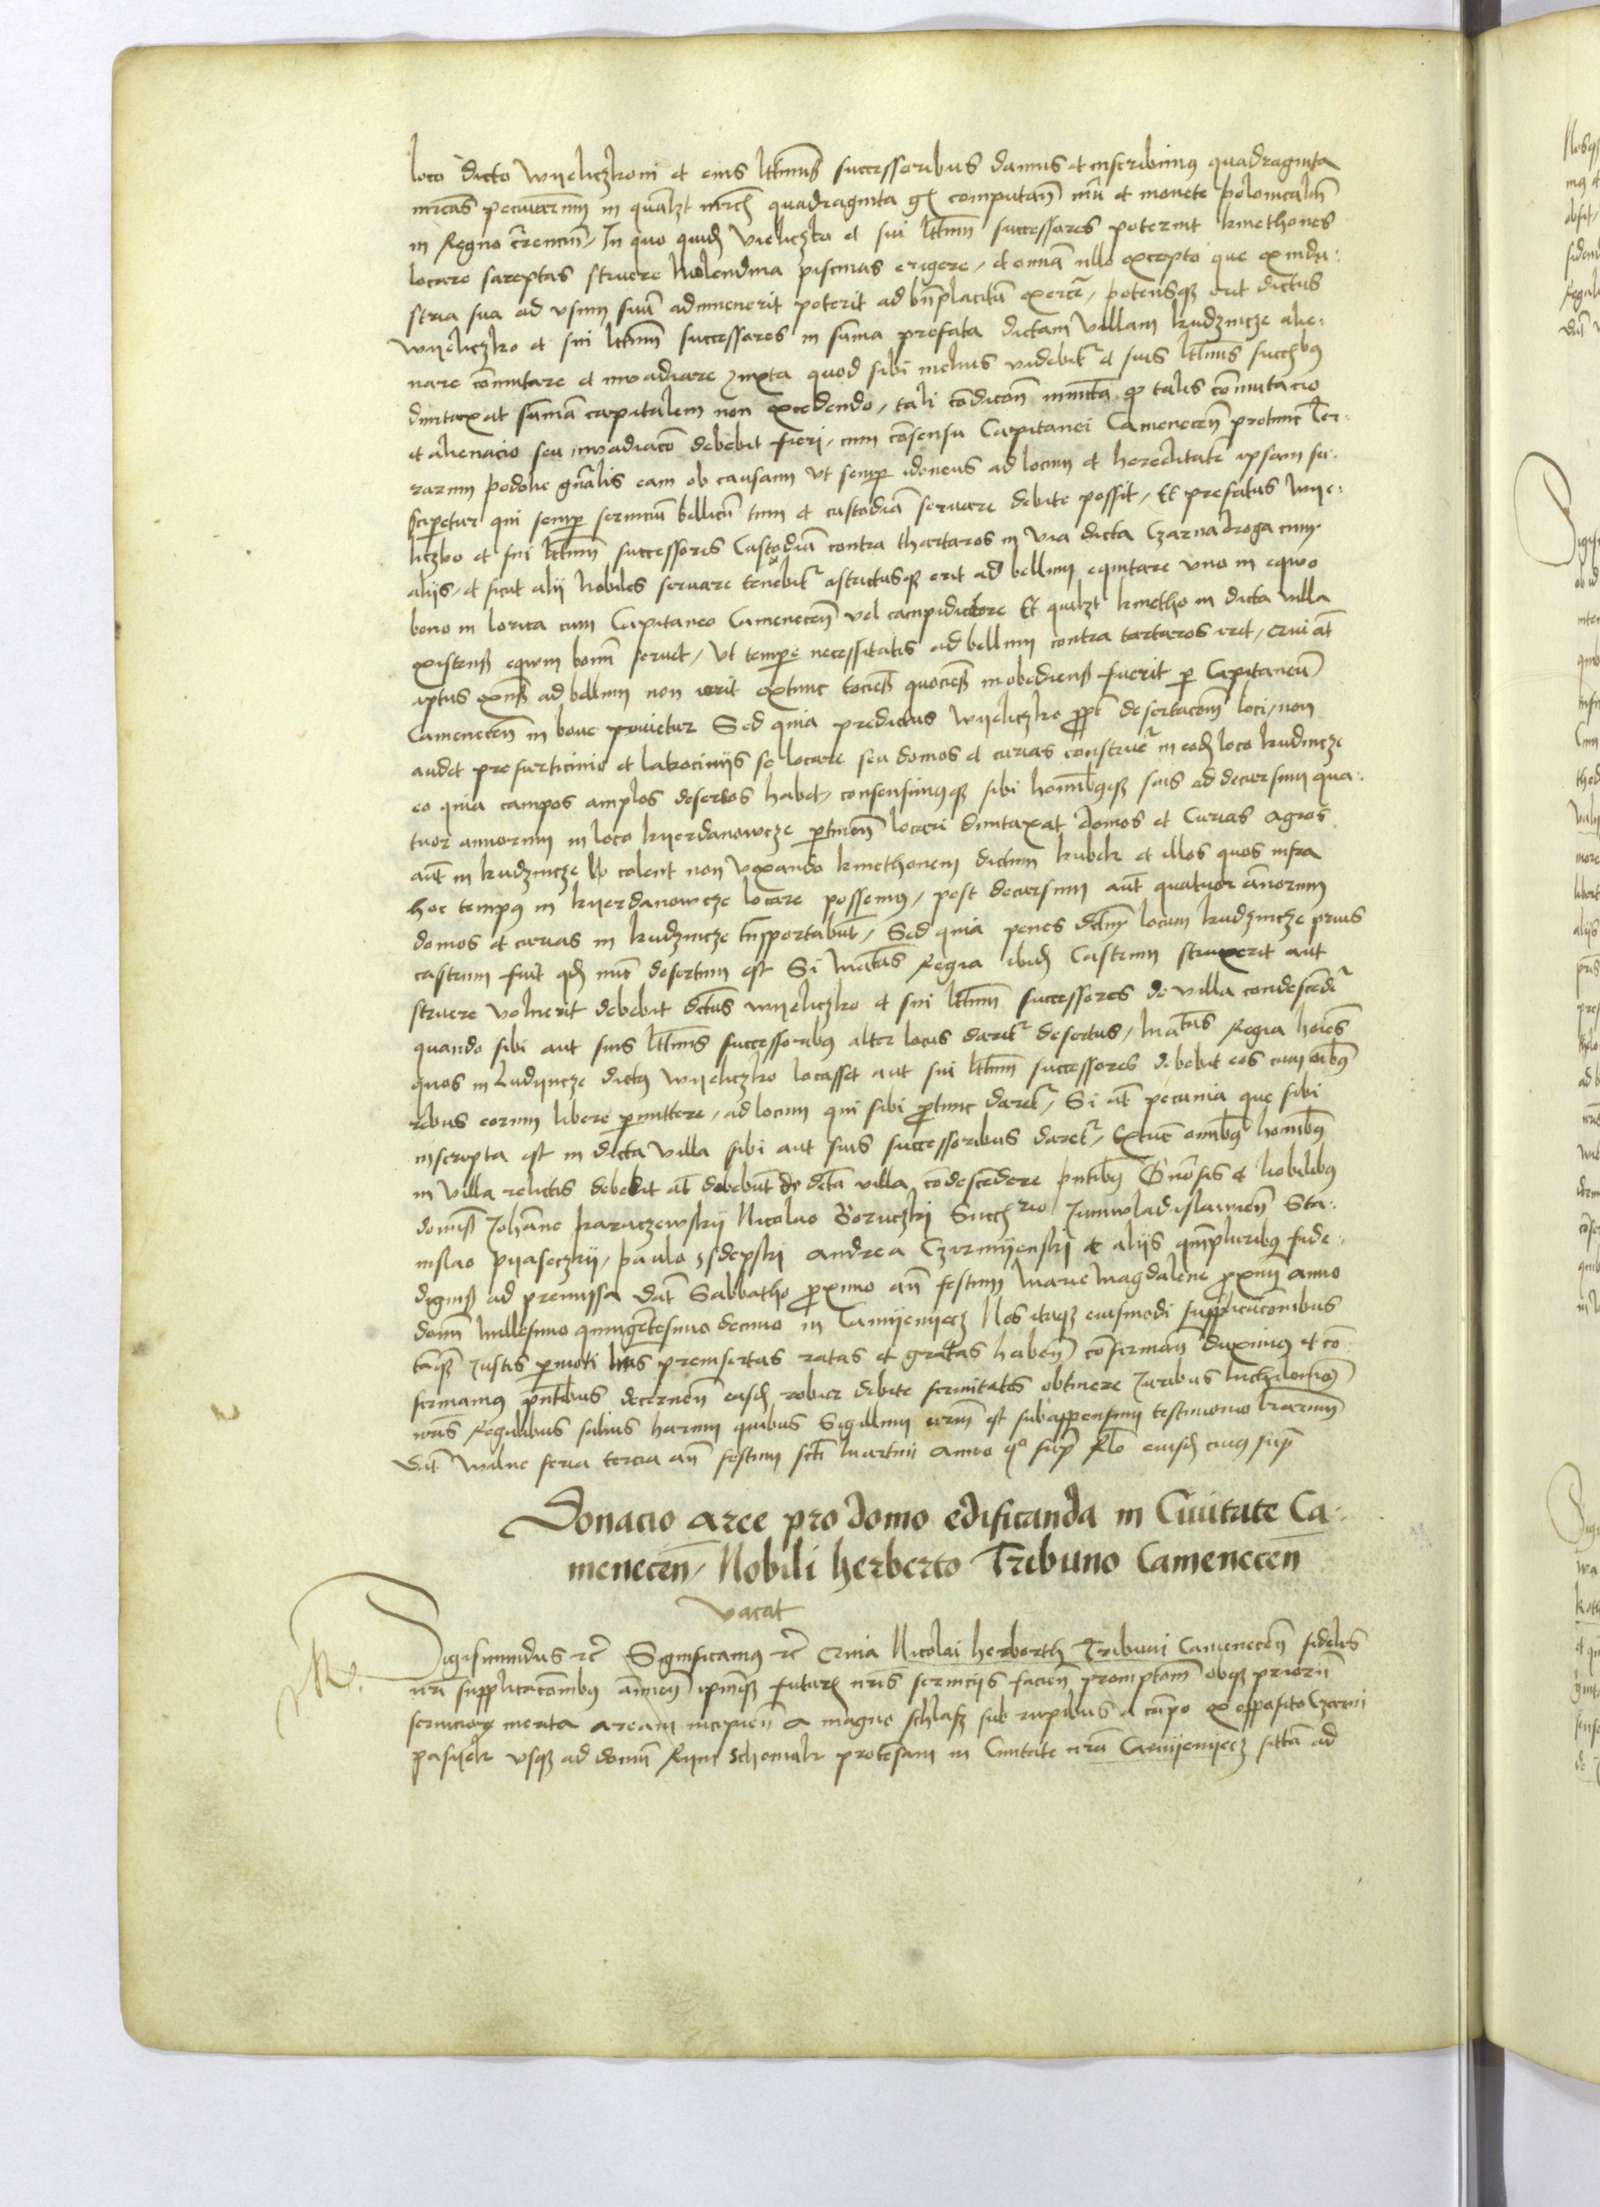 loco dicto Wyeliczkoni et eius lttimis successoribus damus et inscribimus quadraginta
mrcas pecuniarum in qualzt mrcam quadraginta gr computan nri et monete polonicalis
in Regno currencium / In quo quidem Vieliczko et sui lttimi successores poterint kmethones
locare sareptas struere Molendina piscinas erigere / et omnia nullo excepto que ex indu:
stria sua ad vsum suum adinvenerit poterit ad bnplacitum exercere / potensque erit dictus
Wyeliczko et sui lttimi successores in suma prefata dictam villam kudzincze alie:
nare comutare et invadiare iuxta quod sibi melius videbitur et suis lttimis succbus
dumtaxat sumam capitalem non excedendo / tali condicione quod talis comutacio
et alienacio seu invadiaco debebit fieri / cum consensu Capitanei Camenecen protunc Ter:
rarum podolie gnralis eam ob causam vt semper idoneus ad locum et hereditatem ipsam su:
scipetur qui semper servicium bellicum tum et custodiam servare debite possit / Et prefatus Wye:
liczko et sui lttimi successores Custodiam contra thartaros in via dicta Czarna droga cum
aliis / et sicut alii Nobiles servare tenebitur astrictusque erit ad bellum equitare vno in equo
bono in lorica cum Capitaneo Camenecen vel campiductore Et quilzt kmetho in dicta villa
existens equum bonum servet / vt tempore necessitatis ad bellum contra tartaros iret / cui aut
aptus equus ad bellum non ierit extunc tociens quociens inobediens fuerit per Capitaneum
Camenecen in bove punietur Sed quia predictus Wyeliczko propter desertacionem loci / non
audet pre furticinio et latrociniis se locare seu domos et curias construere in eodem loco kudincze
eo quia campos amplos desertos habet / consensimusque sibi hominibusque suis ad decursum qua:
tuor annorum in loco kyerdanowcze pertinen locari dumtaxat domos et Curias Agros
aut in kudzincze colent non vexando kmethonem dictum kubek et illos quos infra
hoc tempus in kyerdanowcze locare possemus / post decursum aut quatuor annorum
domos et curias in kudzincze transportabunt / Sed quia penes dictum locum kudzincze prius
castrum fuit quod nunc desertum est Si Mtas Regia ibidem Castrum struxerit aut
struere voluerit debebit dictus Wyeliczko et sui lttimi successores de villa condescendere
quando sibi aut suis lttimis successoribus alter locus daretur desertus / Matas Regia hoies
quos in kudyncze dictus Wyeliczko locasset aut sui lttimi successores debebit eos cum omnibus
rebus eorum libere permittere / ad locum qui sibi protunc daretur / Si aut pecunia que sibi
inscripta est in dicta villa sibi aut suis successoribus daretur / Extunc omnibus hominibus
in villa relictis debebit aut debebunt de dicta villa condescendere pntibus Gnosis et Nobilibus
dominis Johanne karaczewsky Nicolao Boruczki Succ Juniwladislavien Sta:
nislao pyaseczky / paulo andrea Czermyenski et aliis quampluribus fide:
dignis ad premissa Dat Sabbatho proximo ante festum Marie Magdalene proximum anno
domini Millesimo quingentesimo decimo in Camyenyecz Nos itaque eiusmodi supplicacionibus
tanquam iustis permoti preinsertas ratas et gratas haben confirman duximus et con
firmamus pntibus decernen easdem robur debite firmitatis obtinere Juribus
nris Regalibus salvis harum quibus Sigillum nrum est subappensum testimonio lrarum
Dat Wilne feria tercia ante festum scti Martini Anno quo supra
Donacio aree pro domo edificanda in Civitate Ca:
menecen / Nobili herborto Tribuno Camenecen
vacat
R.
Sigismundus etc Significamus etc Quia Nicolai herborth Tribuni Camenecen fidelis
nri supplicacionibus annuen ipumque futuris nris serviciis facien promptiorem obque priorum
serviciorum merita aream incipien a magno schlasz sub rupibus a campo ex opposito Czarni
pasyek vsque ad domum Ryn Schomak protensam in Civitate nra Camyenyecz sittam ad